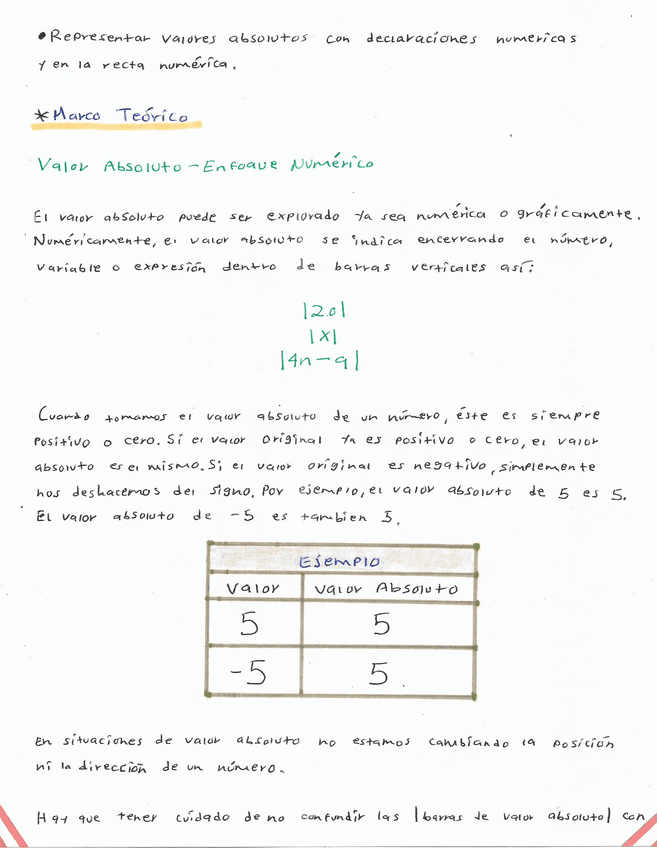 •Representar valores absolutos con declaraciones numericas
y en la recta numérica.
*Marco Teórico
Valor Absoluto - Enfoque Numérico
El valor absoluto puede ser explorado ya sea numérica o gráficamente.
Numéricamente, el valor absoluto se indica encerrando el número,
variable o expresión dentro de barras verticales así:
|20|
|x|
|4n-9|
Cuando tomamos el valor absoluto de un número, éste es siempre
positivo o cero. Si el valor original ya es positivo o cero, el valor
absoluto es el mismo. Si el valor original es negativo, simplemente
nos deshacemos del signo. Por ejemplo, el valor absoluto de 5 es 5.
El valor absoluto de -5 es tambien 5.
Ejemplo
Valor Valor Absoluto
5 5
-5 5
En situaciones de valor absoluto no estamos cambiando la posición
ni la dirección de un número.
Hay que tener cuidado de no confundir las |barras de valor absoluto| con